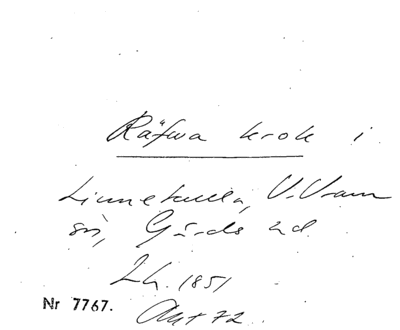 Räfwa krok i
Linnekulla, V. Vram
sn, Gärds hd
Lh. 1851
Nr 7767.
Akt 72